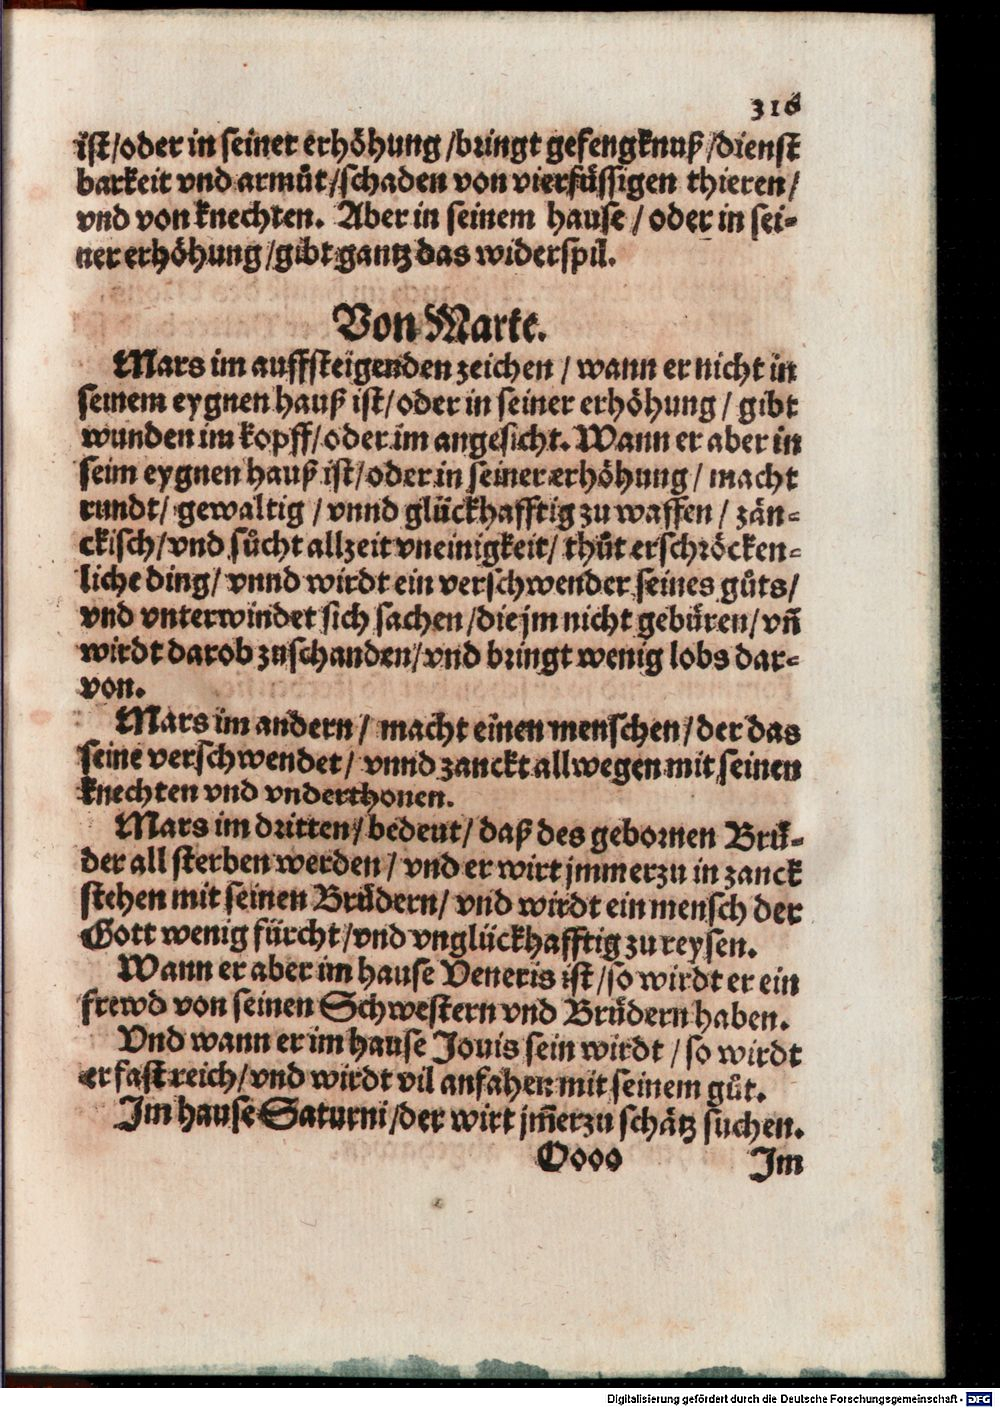 316
ist/oder in seiner erhöhung/bringt gefengknuß/dienst
barkeit vnd armůt/schaden von vierfüssigen thieren/
vnd von knechten. Aber in seinem hause/oder in sei-
ner erhöhung/gibt gantz das widerspil.
Von Marte.
Mars im auffsteigenden zeichen/wann er nicht in
seinem eygnen hauß ist/oder in seiner erhöhung/gibt
wunden im kopff/oder im angesicht. Wann er aber in
seim eygnen hauß ist/oder in seiner erhöhung/macht
rundt/gewaltig/vnnd glückhafftig zu waffen/zän-
ckisch/vnd sůcht allzeit vneinigkeit/thůt erschröcken-
liche ding/vnnd wirdt ein verschwender seines gůts/
vnd vnterwindet sich sachen/die jm nicht gebüren/vñ
wirdt darob zuschanden/vnd bringt wenig lobs dar-
von.
Mars im andern/macht einen menschen/der das
seine verschwendet/vnnd zanckt allwegen mit seinen
knechten vnd vnderthonen.
Mars im dritten/bedeut/daß des gebornen Brů-
der all sterben werden/vnd er wirt jmmerzu in zanck
stehen mit seinen Brůdern/vnd wirdt ein mensch der
Gott wenig fürcht/vnd vnglückhafftig zu reysen.
Wann er aber im hause Veneris ist/so wirdt er ein
frewd von seinen Schwestern vnd Brůdern haben.
Vnd wann er im hause Jouis sein wirdt/so wirdt
er fast reich/vnd wirdt vil anfahen mit seinem gůt.
Im hause Saturni/der wirt jm̃erzu schätz suchen.
Oooo Im
Digitalisierung gefördert durch die Deutsche Forschungsgemeinschaft - DFG